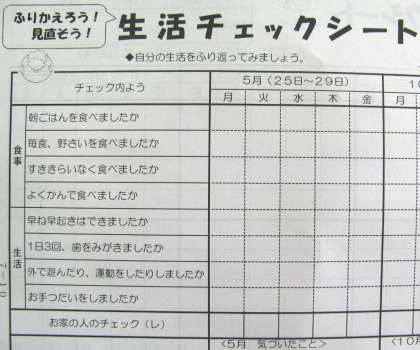 ふりかえろう！
見直そう！
生活チェックシート
◆自分の生活をふり返ってみましょう。
チェック内よう
5月（25日～29日）
10
月 火 水 木 金 月
食事
朝ごはんを食べましたか
毎食、野さいを食べましたか
すききらいなく食べましたか
よくかんで食べましたか
生活
早ね早起きはできましたか
1日3回、歯をみがきましたか
外で遊んだり、運動をしたりしましたか
お手つだいをしましたか
お家の人のチェック（レ）
<5月 気づいたこと>
<10月
7-10